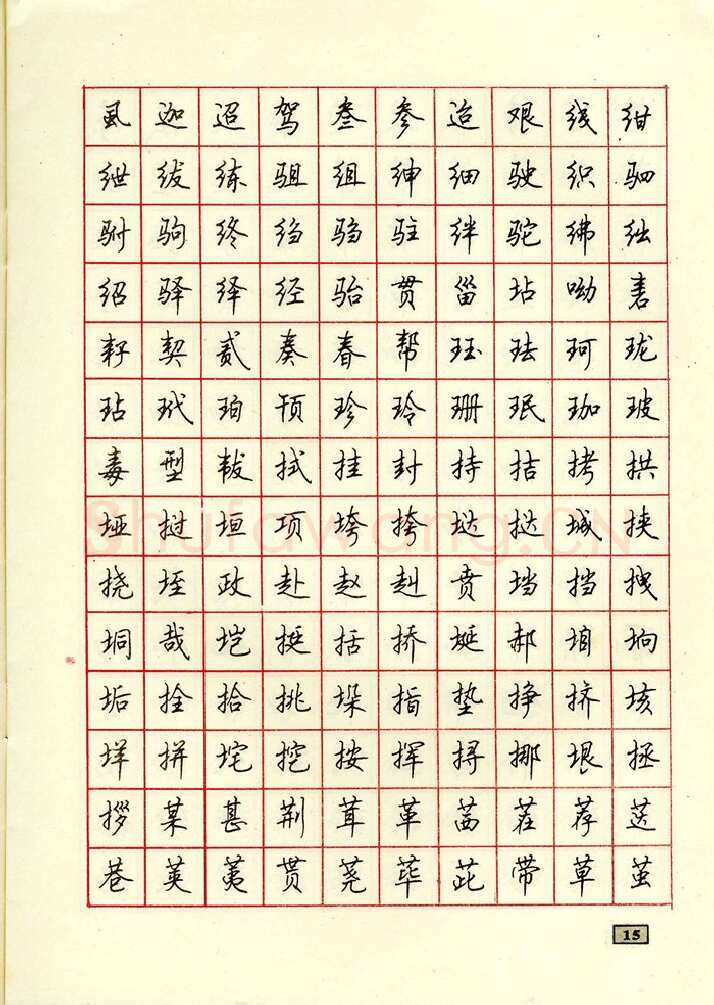 虱迦迢驾叁参迨艰线绀
绁绂练驵组绅细驶织驷
驸驹终绉驺驻绊驼绋绌
绍驿绎经骀贯甾坫呦砉
耔契贰奏春帮珏珐珂珑
玷玳珀顸珍玲珊珉珈玻
毒型韨拭挂封持拮拷拱
垭挝垣项垮挎垯挞城挟
挠垤政赴赵赳贲垱挡拽
垌哉垲挺括挢埏郝垍垧
垢拴拾挑垛指垫挣挤垓
垟拼垞挖按挥挦挪垠拯
拶某甚荆茸革茜茬荐荙
巷荚荑贳荛荜茈带草茧
15
Shufawang.CN